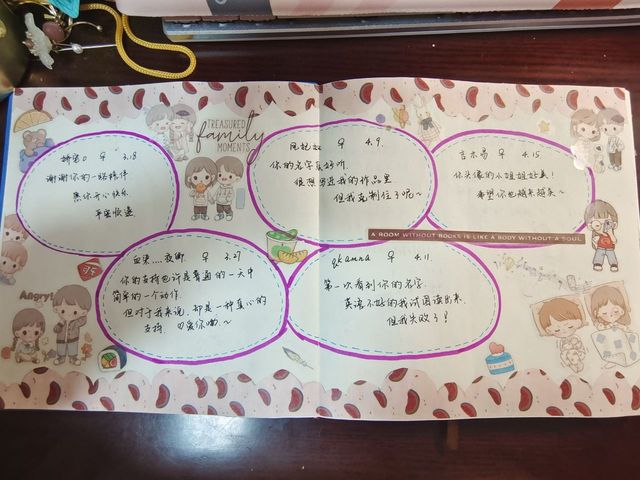 TREASURED
family
MOMENTS
♀ 3.18
谢谢你的一路陪伴
愿你开心快乐
平安快递
♀ 3.27
你的支持也许是普通的一天中
简单的一个动作
但对于我来说,却是一种真心的
支持
♀ 4.9.
你的名字真好听
很想写进我的作品里
但我克制住了呢~
吉木易 ♀ 4.15
你头像的小姐姐好美!
希望你也越来越美~
A ROOM WITHOUT BOOKS IS LIKE A BODY WITHOUT A SOUL
♀ 4.11.
第一次看到你的名字
英语不好的我试图读出来.
但我失败了!
Angry!